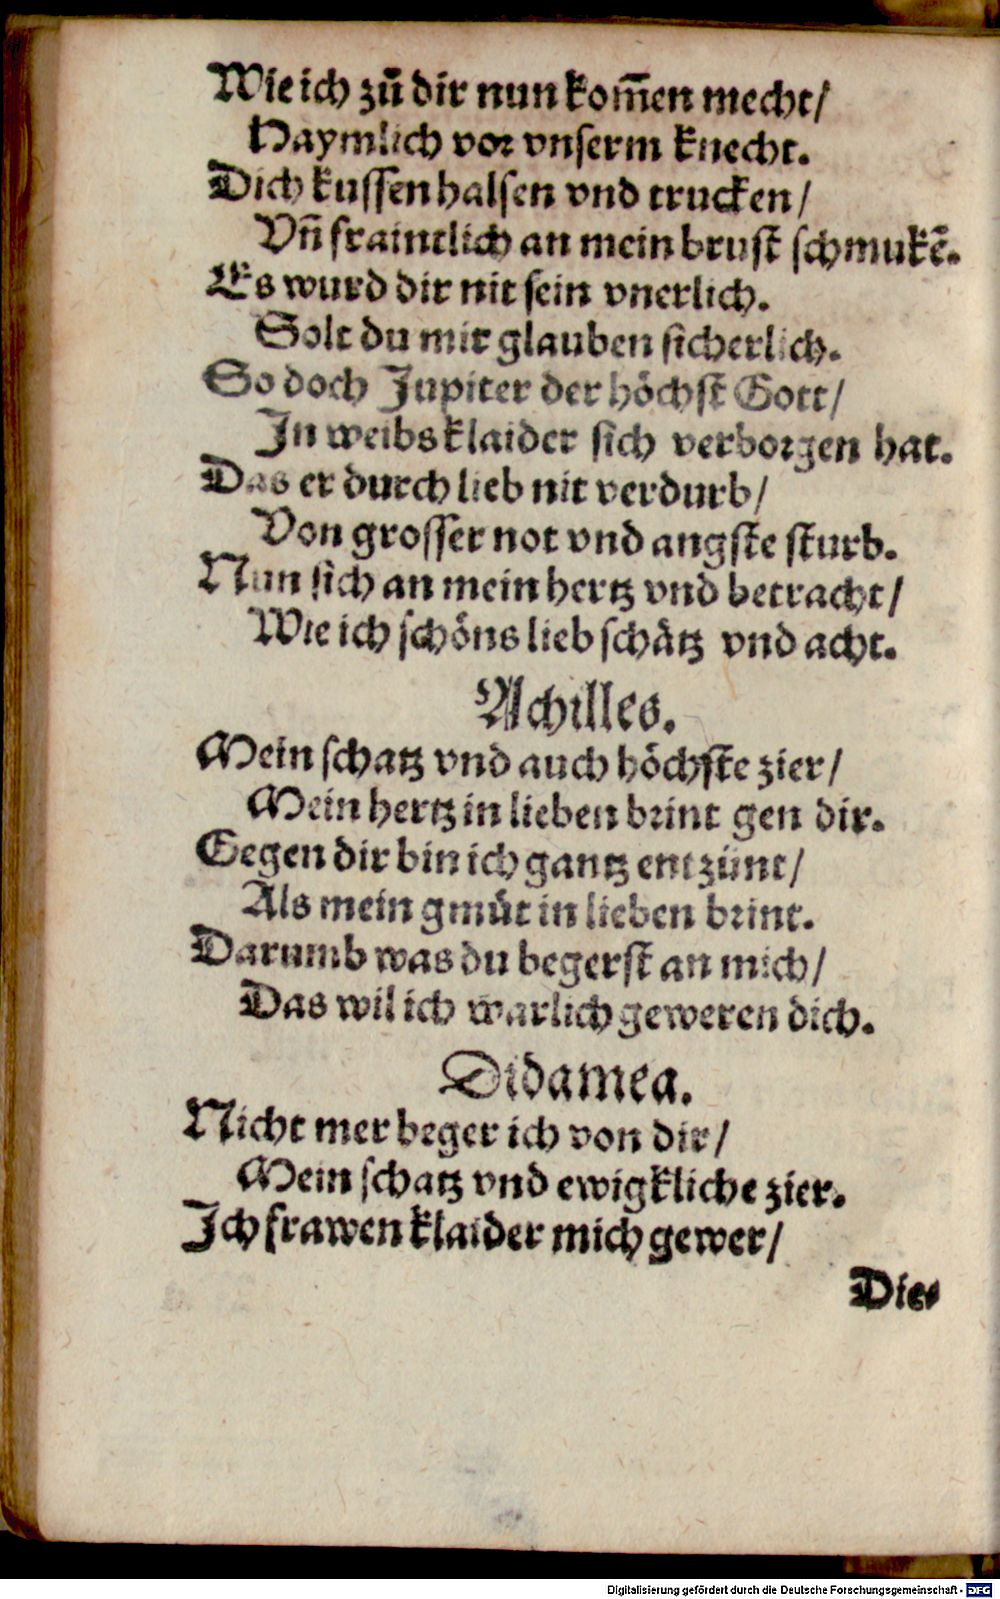 Wie ich zů dir nun kom̄en mecht/
Haymlich vor vnserm knecht.
Dich kussen halsen vnd trucken/
Vn̄ fraintlich an mein brust schmukē.
Es wurd dir nit sein vnerlich.
Solt du mir glauben sicherlich.
So doch Jupiter der höchst Gott/
In weibs klaider sich verborgen hat.
Das er durch lieb nit verdurb/
Von grosser not vnd angste sturb.
Nun sich an mein hertz vnd betracht/
Wie ich schöns lieb schätz vnd acht.
Achilles.
Mein schatz vnd auch höchste zier/
Mein hertz in lieben brint gen dir.
Gegen dir bin ich gantz entzünt/
Als mein gmüt in lieben brint.
Darumb was du begerst an mich/
Das wil ich warlich geweren dich.
Didamea.
Nicht mer beger ich von dir/
Mein schatz vnd ewigkliche zier.
Ich frawen klaider mich gewer/
Die⸗
Digitalisierung gefördert durch die Deutsche Forschungsgemeinschaft - DFG